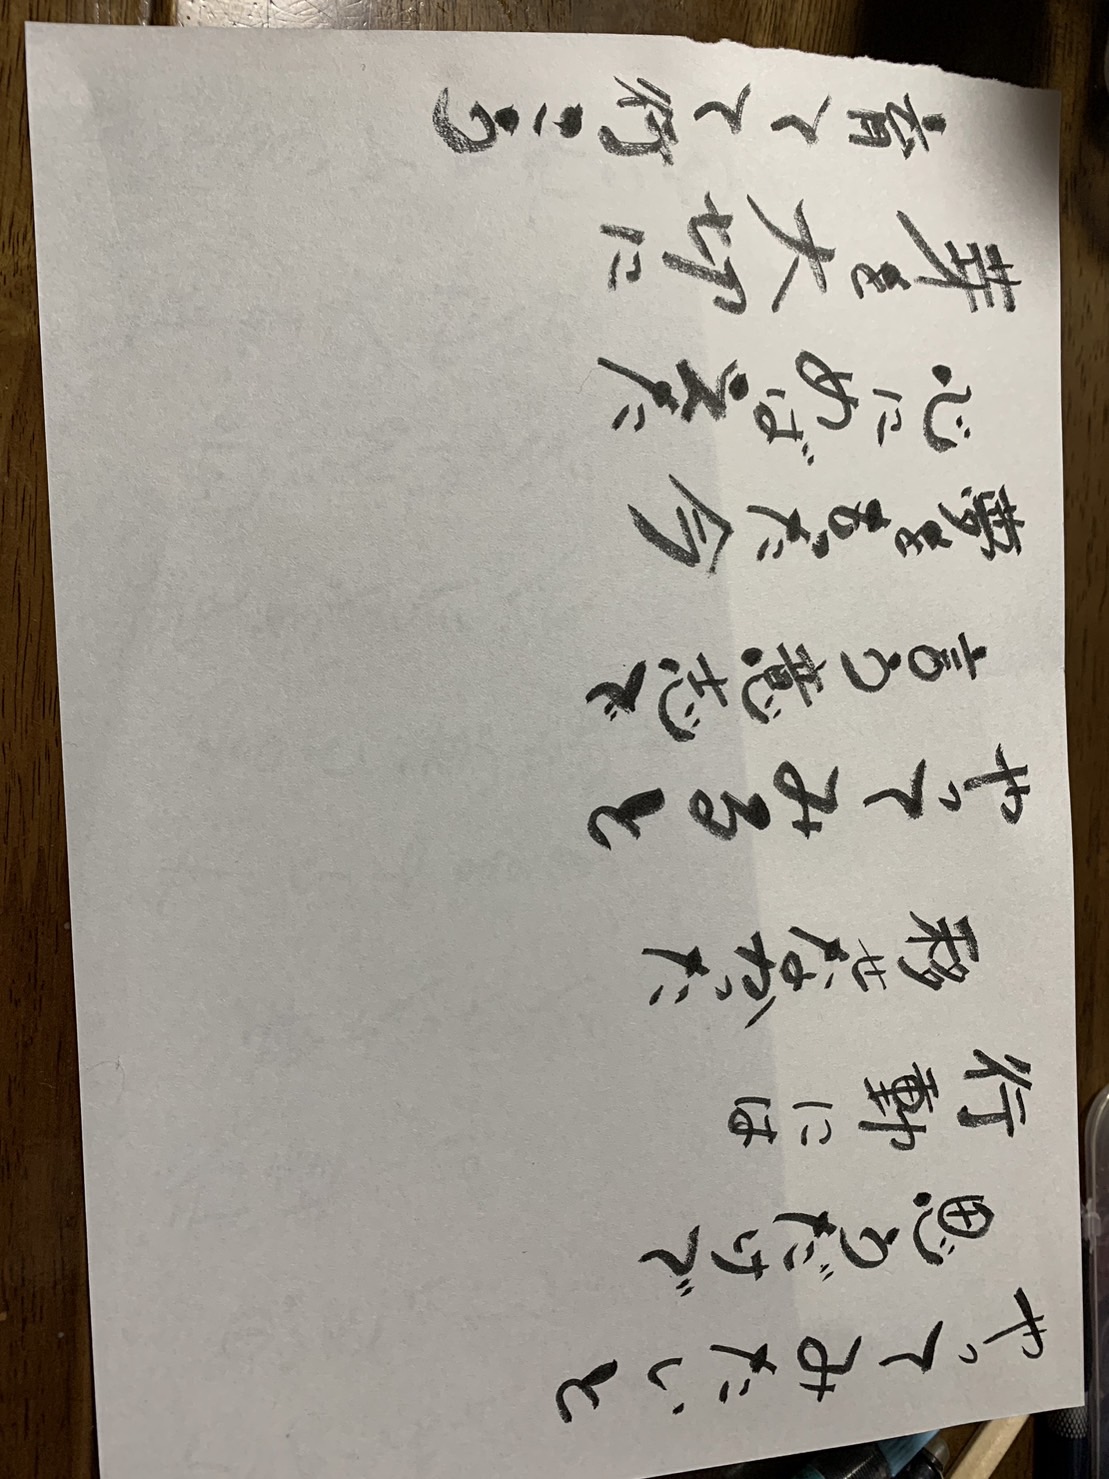 やってみたいと
思うだけで
行動には
移せなかった
やってみると
言う意志で
夢をもった今
心にめばえた
芽を大切に
育てて行こう